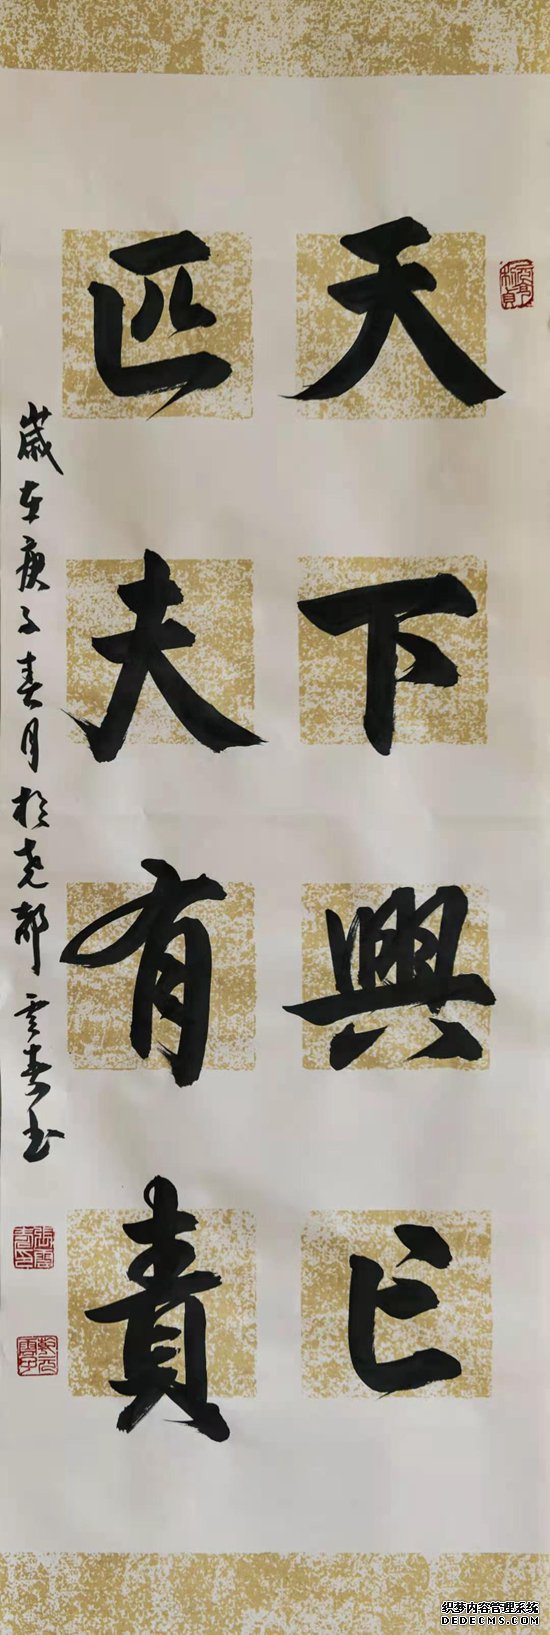 天下興亡
匹夫有責
歲在庚子春月於尧都雲春书
织梦内容管理系统
DEDECMS.COM